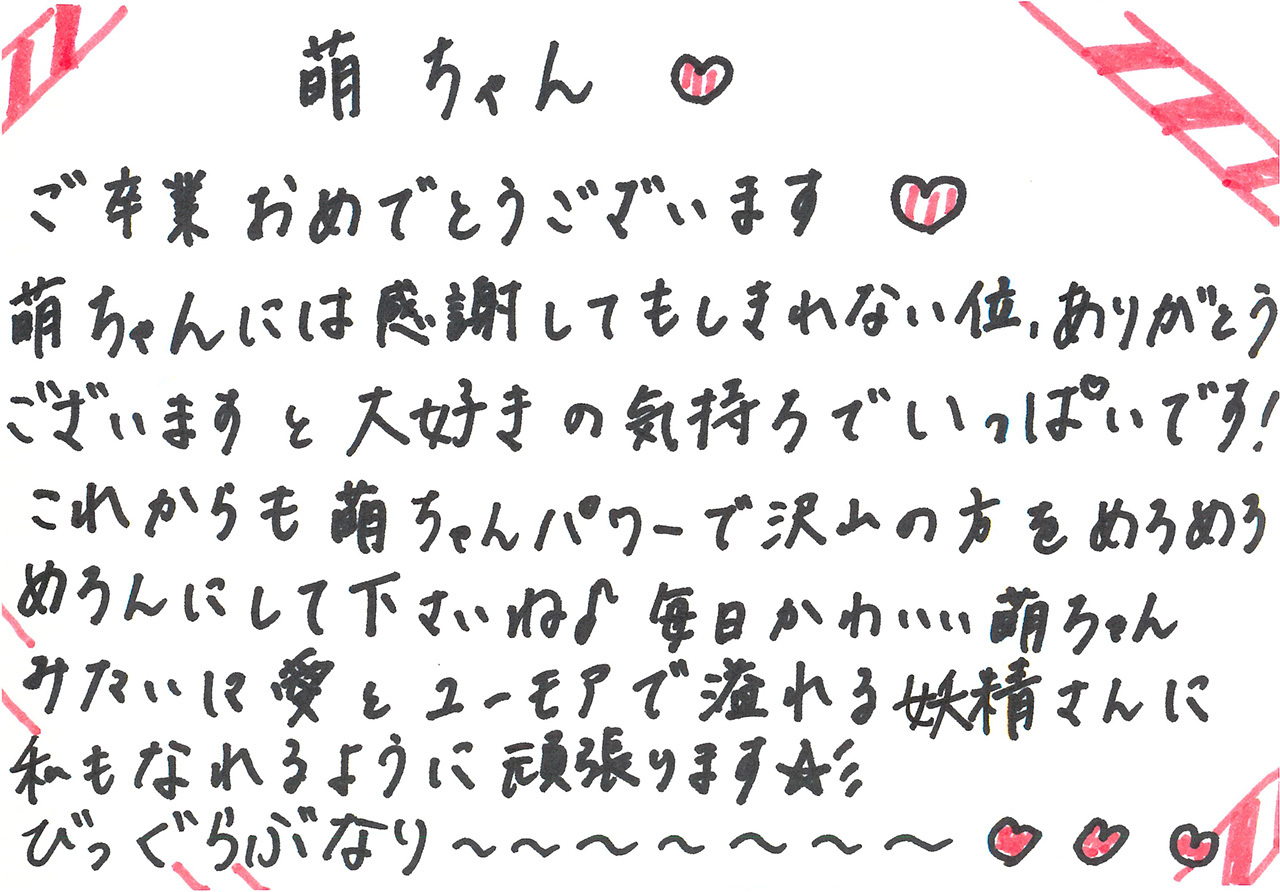 萌ちゃん♡
ご卒業おめでとうございます♡
萌ちゃんには感謝してもしきれない位、ありがとう
ございますと大好きの気持ちでいっぱいです!
これからも萌ちゃんパワーで沢山の方をめろめろ
めろんにして下さいね♪毎日かわいい萌ちゃん
みたいに愛とユーモアで溢れる妖精さんに
私もなれるように頑張ります☆彡
びっぐらぶなり〜〜〜〜〜〜〜〜♡♡♡